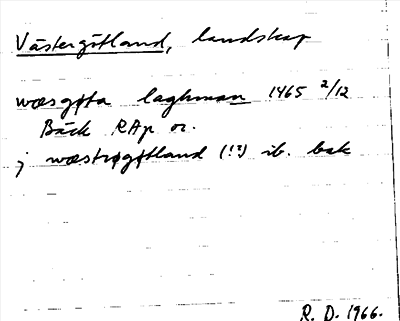 Västergötland, landskap
wæsgøta laghman 1465 2/12
Bäck RAp or.
j wæstrøgøtland (!?) ib. bak
R. D. 1966.